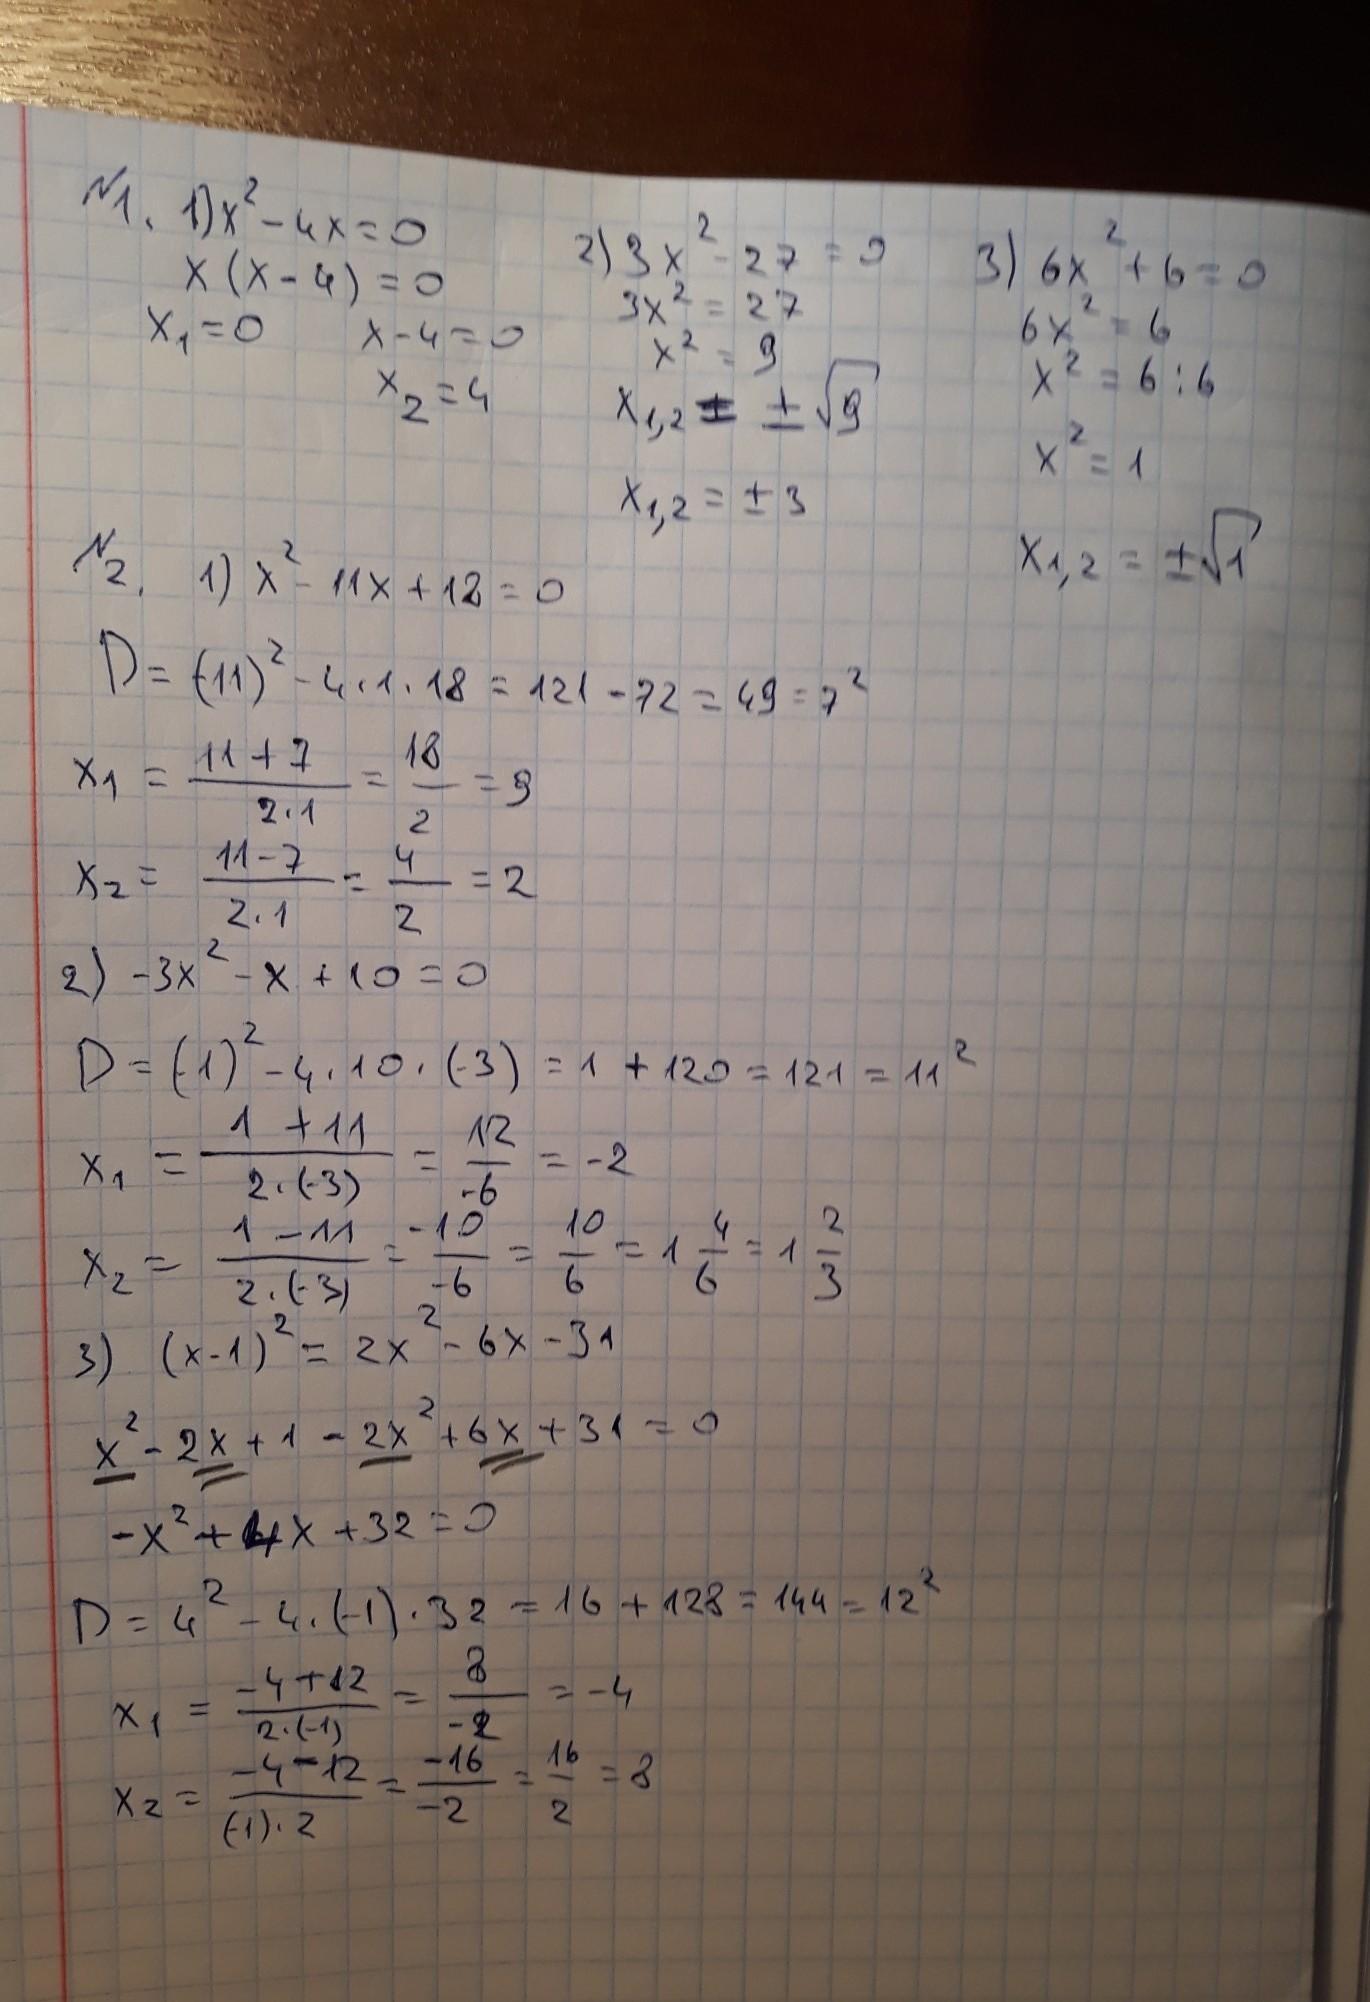 №1. 1) x² - 4x = 0
x (x - 4) = 0
x₁ = 0 x - 4 = 0
x₂ = 4
2) 3x² - 27 = 0
3x² = 27
x² = 9
x₁,₂ = ±√9
x₁,₂ = ± 3
3) 6x² + 6 = 0
6x² = 6
x² = 6 : 6
x² = 1
x₁,₂ = ±√1
№2. 1) x² - 11x + 18 = 0
D = (-11)² - 4 · 1 · 18 = 121 - 72 = 49 = 7²
x₁ = (11 + 7)/(2·1) = 18/2 = 9
x₂ = (11 - 7)/(2·1) = 4/2 = 2
2) -3x² - x + 10 = 0
D = (-1)² - 4 · 10 · (-3) = 1 + 120 = 121 = 11²
x₁ = (1 + 11)/(2·(-3)) = 12/-6 = -2
x₂ = (1 - 11)/(2·(-3)) = -10/-6 = 10/6 = 1 4/6 = 1 2/3
3) (x - 1)² = 2x² - 6x - 31
x² - 2x + 1 - 2x² + 6x + 31 = 0
-x² + 4x + 32 = 0
D = 4² - 4 · (-1) · 32 = 16 + 128 = 144 = 12²
x₁ = (-4 + 12)/(2·(-1)) = 8/-2 = -4
x₂ = (-4 - 12)/((-1)·2) = -16/-2 = 16/2 = 8